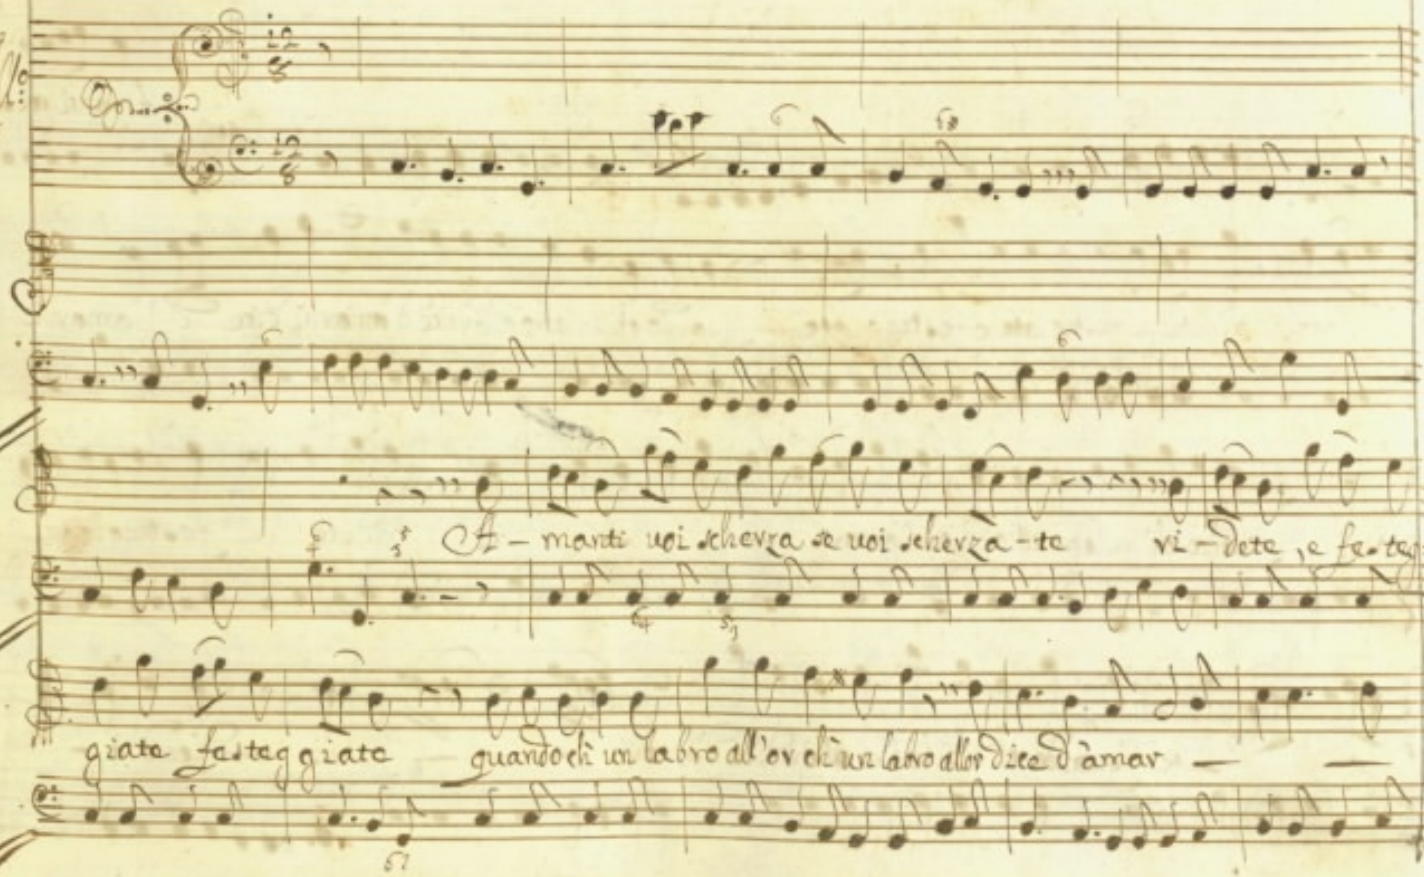 12
8
12
8
A - manti voi scherza se voi scherza - te vi - dete, e festeg
giate festeg giate quando ch' un labro all'or ch' un labro allor dice d'amar